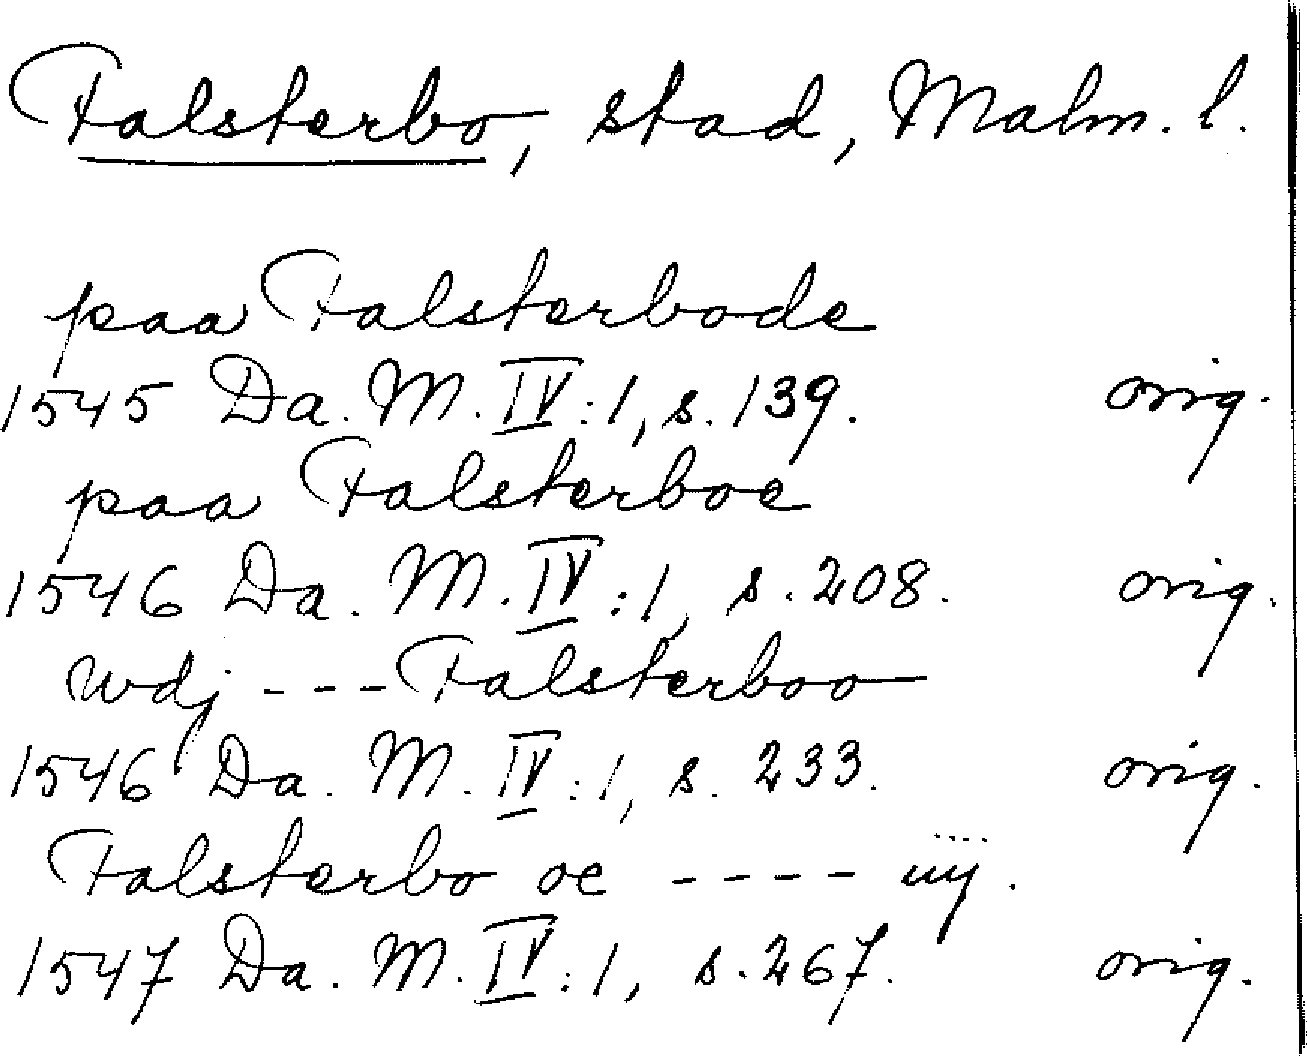 Falsterbo, stad, Malm. l.
paa Falsterbode
1545 Da. M. IV:1, s. 139. orig.
paa Falsterboe
1546 Da. M. IV:1, s. 208. orig.
wdj --- Falsterboo
1546 Da. M. IV:1, s. 233. orig.
Falsterbo oe ---- iiij.
1547 Da. M. IV:1, s. 267. orig.